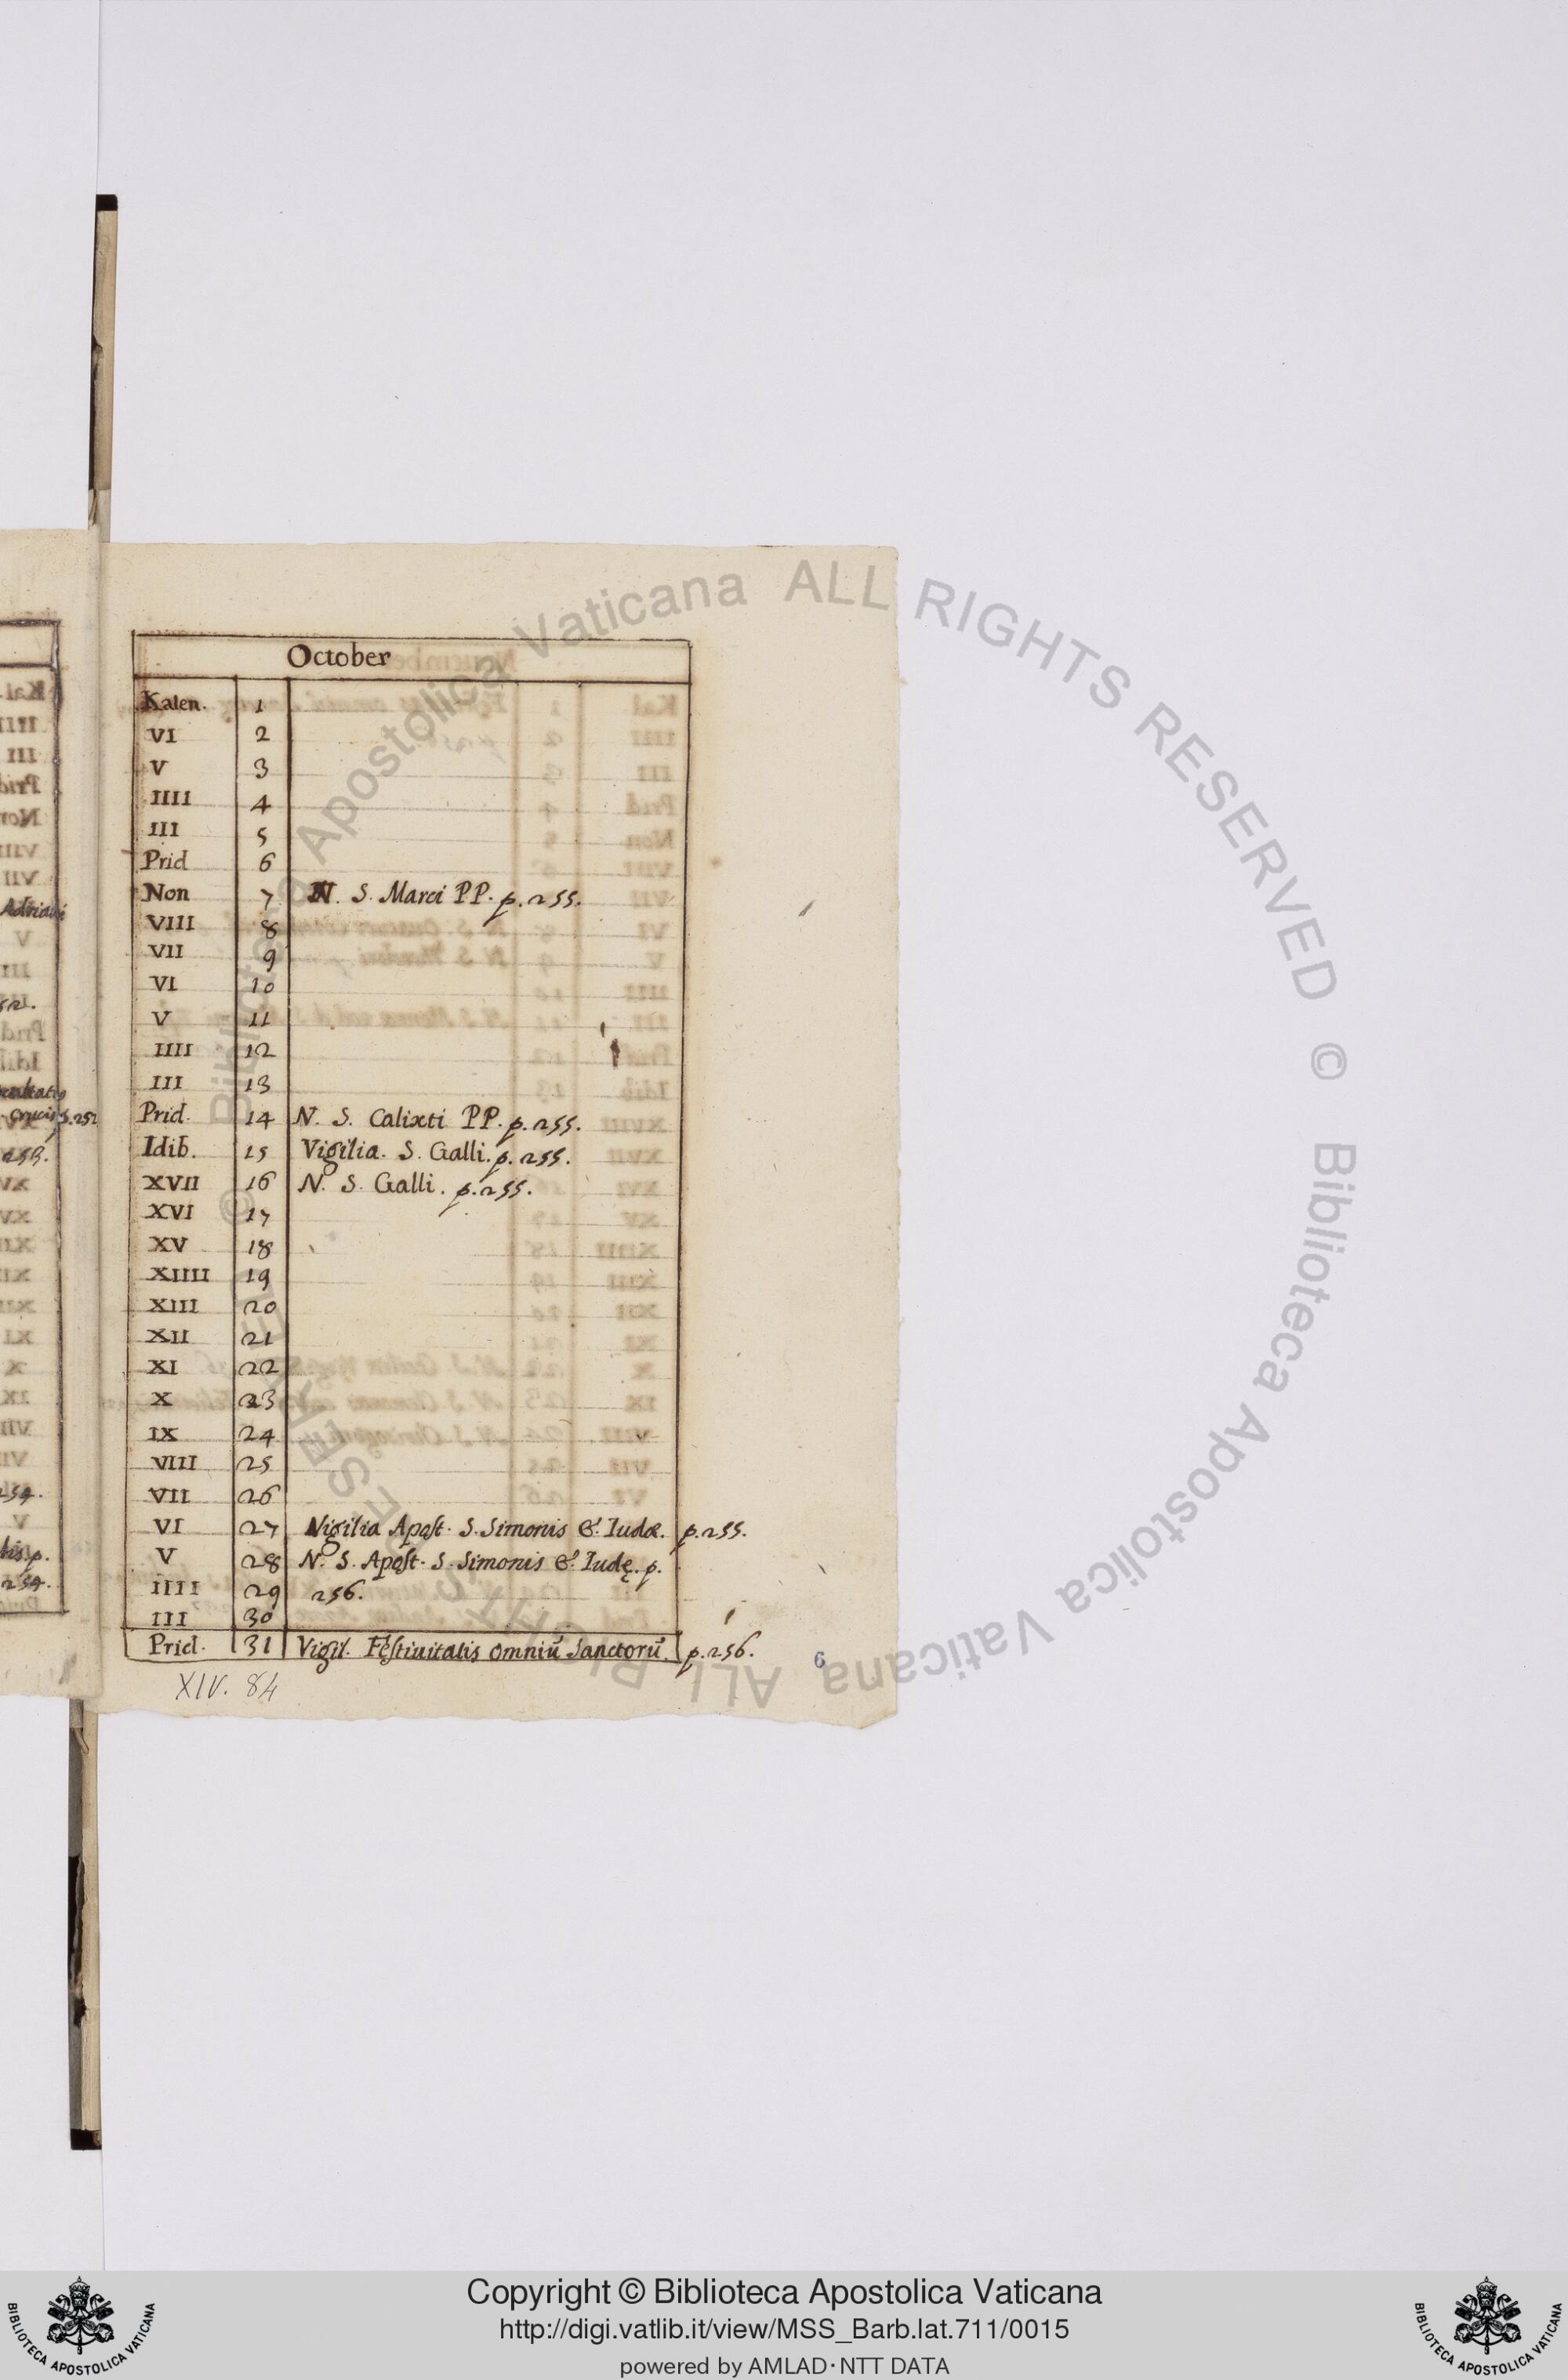 October
Kalen. 1
VI 2
V 3
IIII 4
III 5
Prid 6
Non 7 N. S. Marci PP. p. 255.
VIII 8
VII 9
VI 10
V 11
IIII 12
III 13
Prid. 14 N. S. Calixti PP. p. 255.
Idib. 15 Vigilia. S. Galli. p. 255.
XVII 16 N. S. Galli. p. 255.
XVI 17
XV 18
XIIII 19
XIII 20
XII 21
XI 22
X 23
IX 24
VIII 25
VII 26
VI 27 Vigilia Apost. S. Simonis & Iudæ. p. 255.
V 28 N. S. Apost. S. Simonis & Iudę. p.
IIII 29 256.
III 30
Prid. 31 Vigil. Fęstiuitatis omniū Sanctorū. p. 256.
XIV. 84
6
© Biblioteca Apostolica Vaticana ALL RIGHTS RESERVED © Biblioteca Apostolica Vaticana ALL RIGHTS RESERVED
Copyright © Biblioteca Apostolica Vaticana
http://digi.vatlib.it/view/MSS_Barb.lat.711/0015
powered by AMLAD·NTT DATA
BIBLIOTECA APOSTOLICA VATICANA
BIBLIOTECA APOSTOLICA VATICANA